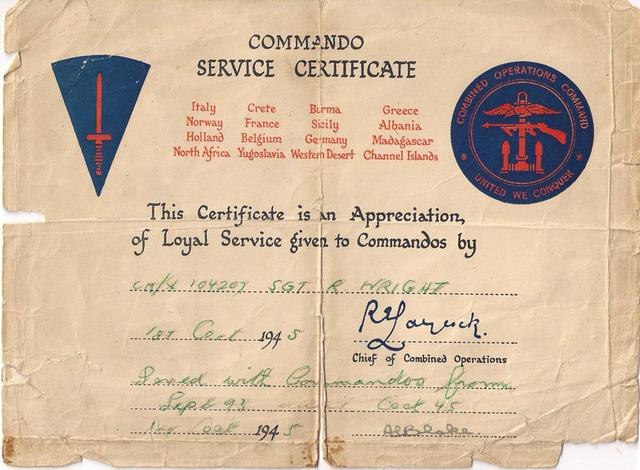 COMMANDO
SERVICE CERTIFICATE
Italy Crete Burma Greece
Norway France Sicily Albania
Holland Belgium Germany Madagascar
North Africa Yugoslavia Western Desert Channel Islands
COMBINED OPERATIONS COMMAND
UNITED WE CONQUER
This Certificate is an Appreciation,
of Loyal Service given to Commandos by
CH/X 104207 SGT R WRIGHT
1st Oct 1945
R Laycock.
Chief of Combined Operations
Served with Commandos from
Sept 43 Oct 45
1st Oct 1945